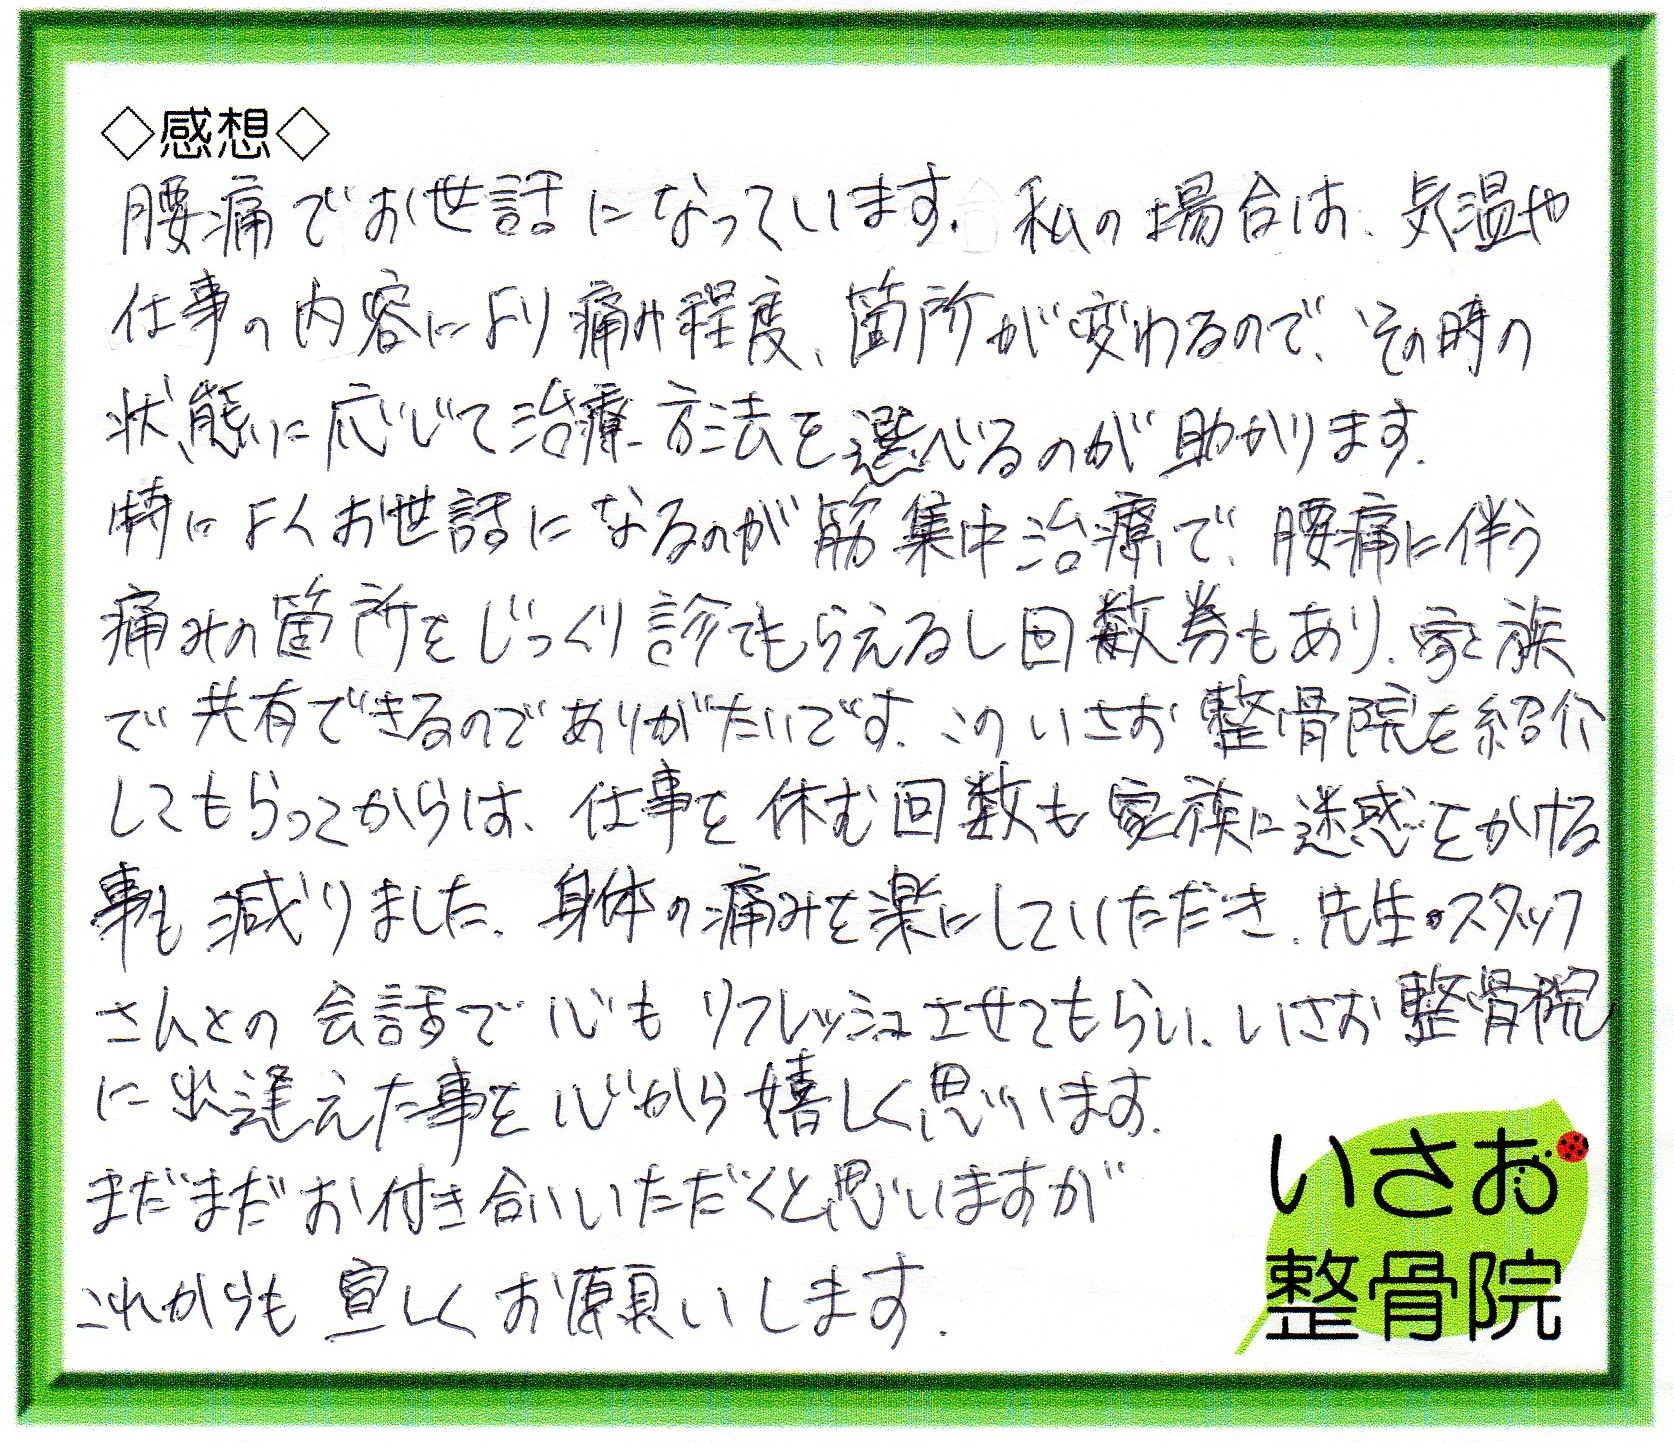 ◇感想◇
腰痛でお世話になっています。私の場合は、気温や
仕事の内容により痛み程度、箇所が変わるので、その時の
状態に応じて治療方法を選べるのが助かります。
特によくお世話になるのが筋集中治療で、腰痛に伴う
痛みの箇所をじっくり診てもらえるし回数券もあり、家族
で共有できるのでありがたいです。このいさお整骨院を紹介
してもらってからは、仕事を休む回数も家族に迷惑をかける
事も減りました。身体の痛みを楽にしていただき、先生・スタッフ
さんとの会話で心もリフレッシュさせてもらい、いさお整骨院
に出逢えた事を心から嬉しく思います。
まだまだお付き合いいただくと思いますが
これからも宜しくお願いします。
いさお
整骨院